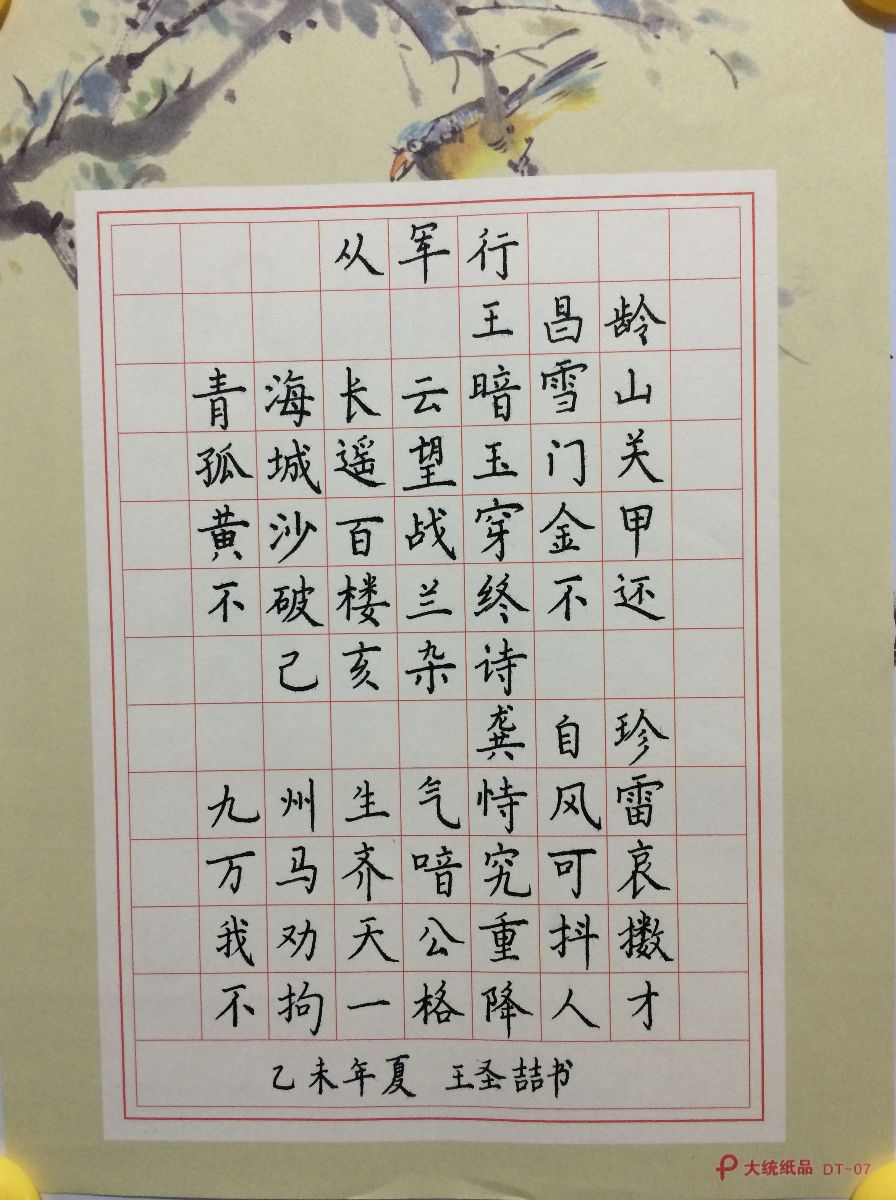 从军行
王昌龄
青海长云暗雪山
孤城遥望玉门关
黄沙百战穿金甲
不破楼兰终不还
己亥杂诗
龚自珍
九州生气恃风雷
万马齐喑究可哀
我劝天公重抖擞
不拘一格降人才
乙未年夏 王圣喆书
大统纸品 DT-07